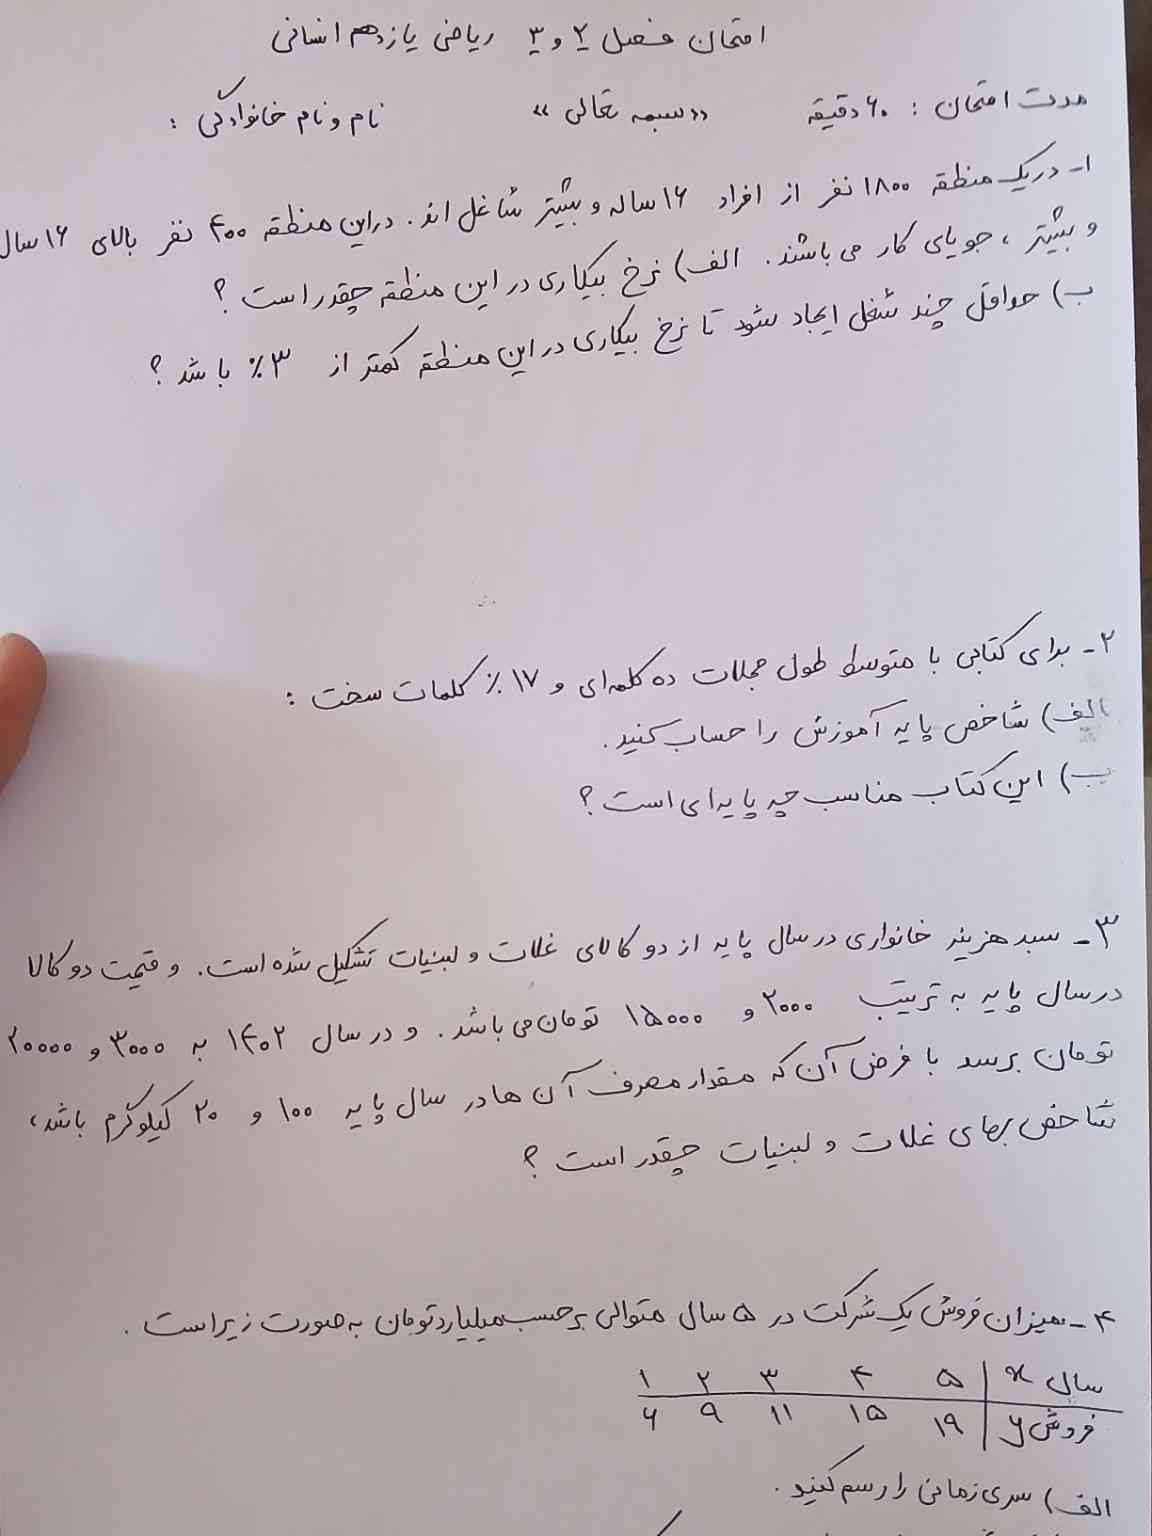 امتحان فصل ۲ و ۳ ریاضی یازدهم انسانی
مدت امتحان : ۶۰ دقیقه «بسمه تعالی» نام و نام خانوادگی :
۱- در یک منطقه ۱۸۰۰ نفر از افراد ۱۶ ساله و بیشتر شاغل اند. در این منطقه ۴۰۰ نفر بالای ۱۶ سال
و بیشتر ، جویای کار می باشند. الف) نرخ بیکاری در این منطقه چقدر است ؟
ب) حداقل چند شغل ایجاد شود تا نرخ بیکاری در این منطقه کمتر از ۳٪ باشد ؟
۲- برای کتابی با متوسط طول جملات ده کلمه‌ای و ۱۷٪ کلمات سخت :
الف) شاخص پایه آموزش را حساب کنید.
ب) این کتاب مناسب چه پایه‌ای است ؟
۳- سبد هزینه خانواری در سال پایه از دو کالای غلات و لبنیات تشکیل شده است. و قیمت دو کالا
در سال پایه به ترتیب ۲۰۰۰ و ۱۵۰۰۰ تومان می باشد. و در سال ۱۴۰۲ به ۳۰۰۰ و ۲۰۰۰۰
تومان برسد با فرض آن که مقدار مصرف آن ها در سال پایه ۱۰۰ و ۲۰ کیلوگرم باشد،
شاخص بهای غلات و لبنیات چقدر است ؟
۴- میزان فروش یک شرکت در ۵ سال متوالی برحسب میلیارد تومان به صورت زیر است .
سال x ۵ ۴ ۳ ۲ ۱
فروش y ۱۹ ۱۵ ۱۱ ۹ ۶
الف) سری زمانی را رسم کنید.